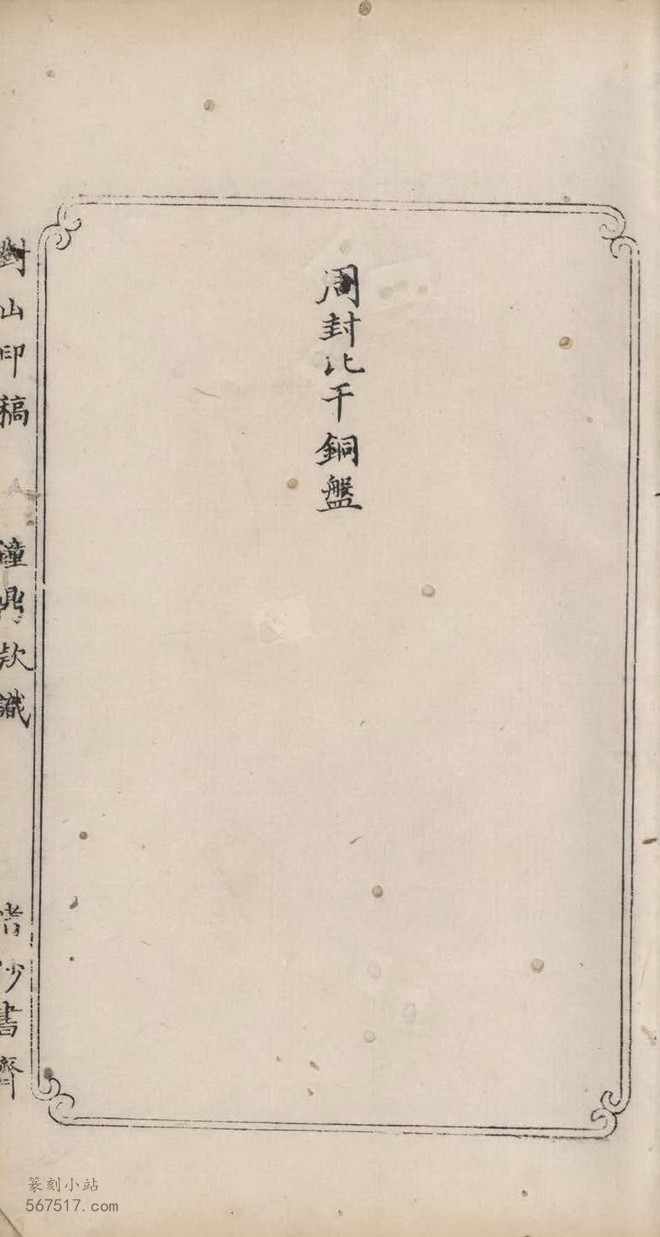 周封比干銅盤
對山印稿
鐘鼎欵識
書齋
篆刻小站
567517.com